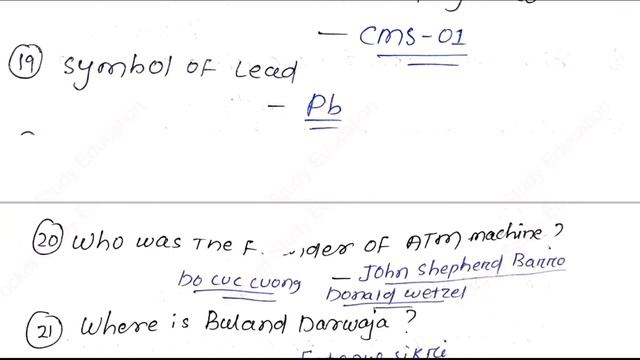 — CMS-01
19 Symbol of Lead
— Pb
20 Who was The F. ..nder of ATM machine?
— John Shepherd Barro
Do cuc cuong Donald wetzel
21 Where is Buland Darwaja?
sikri